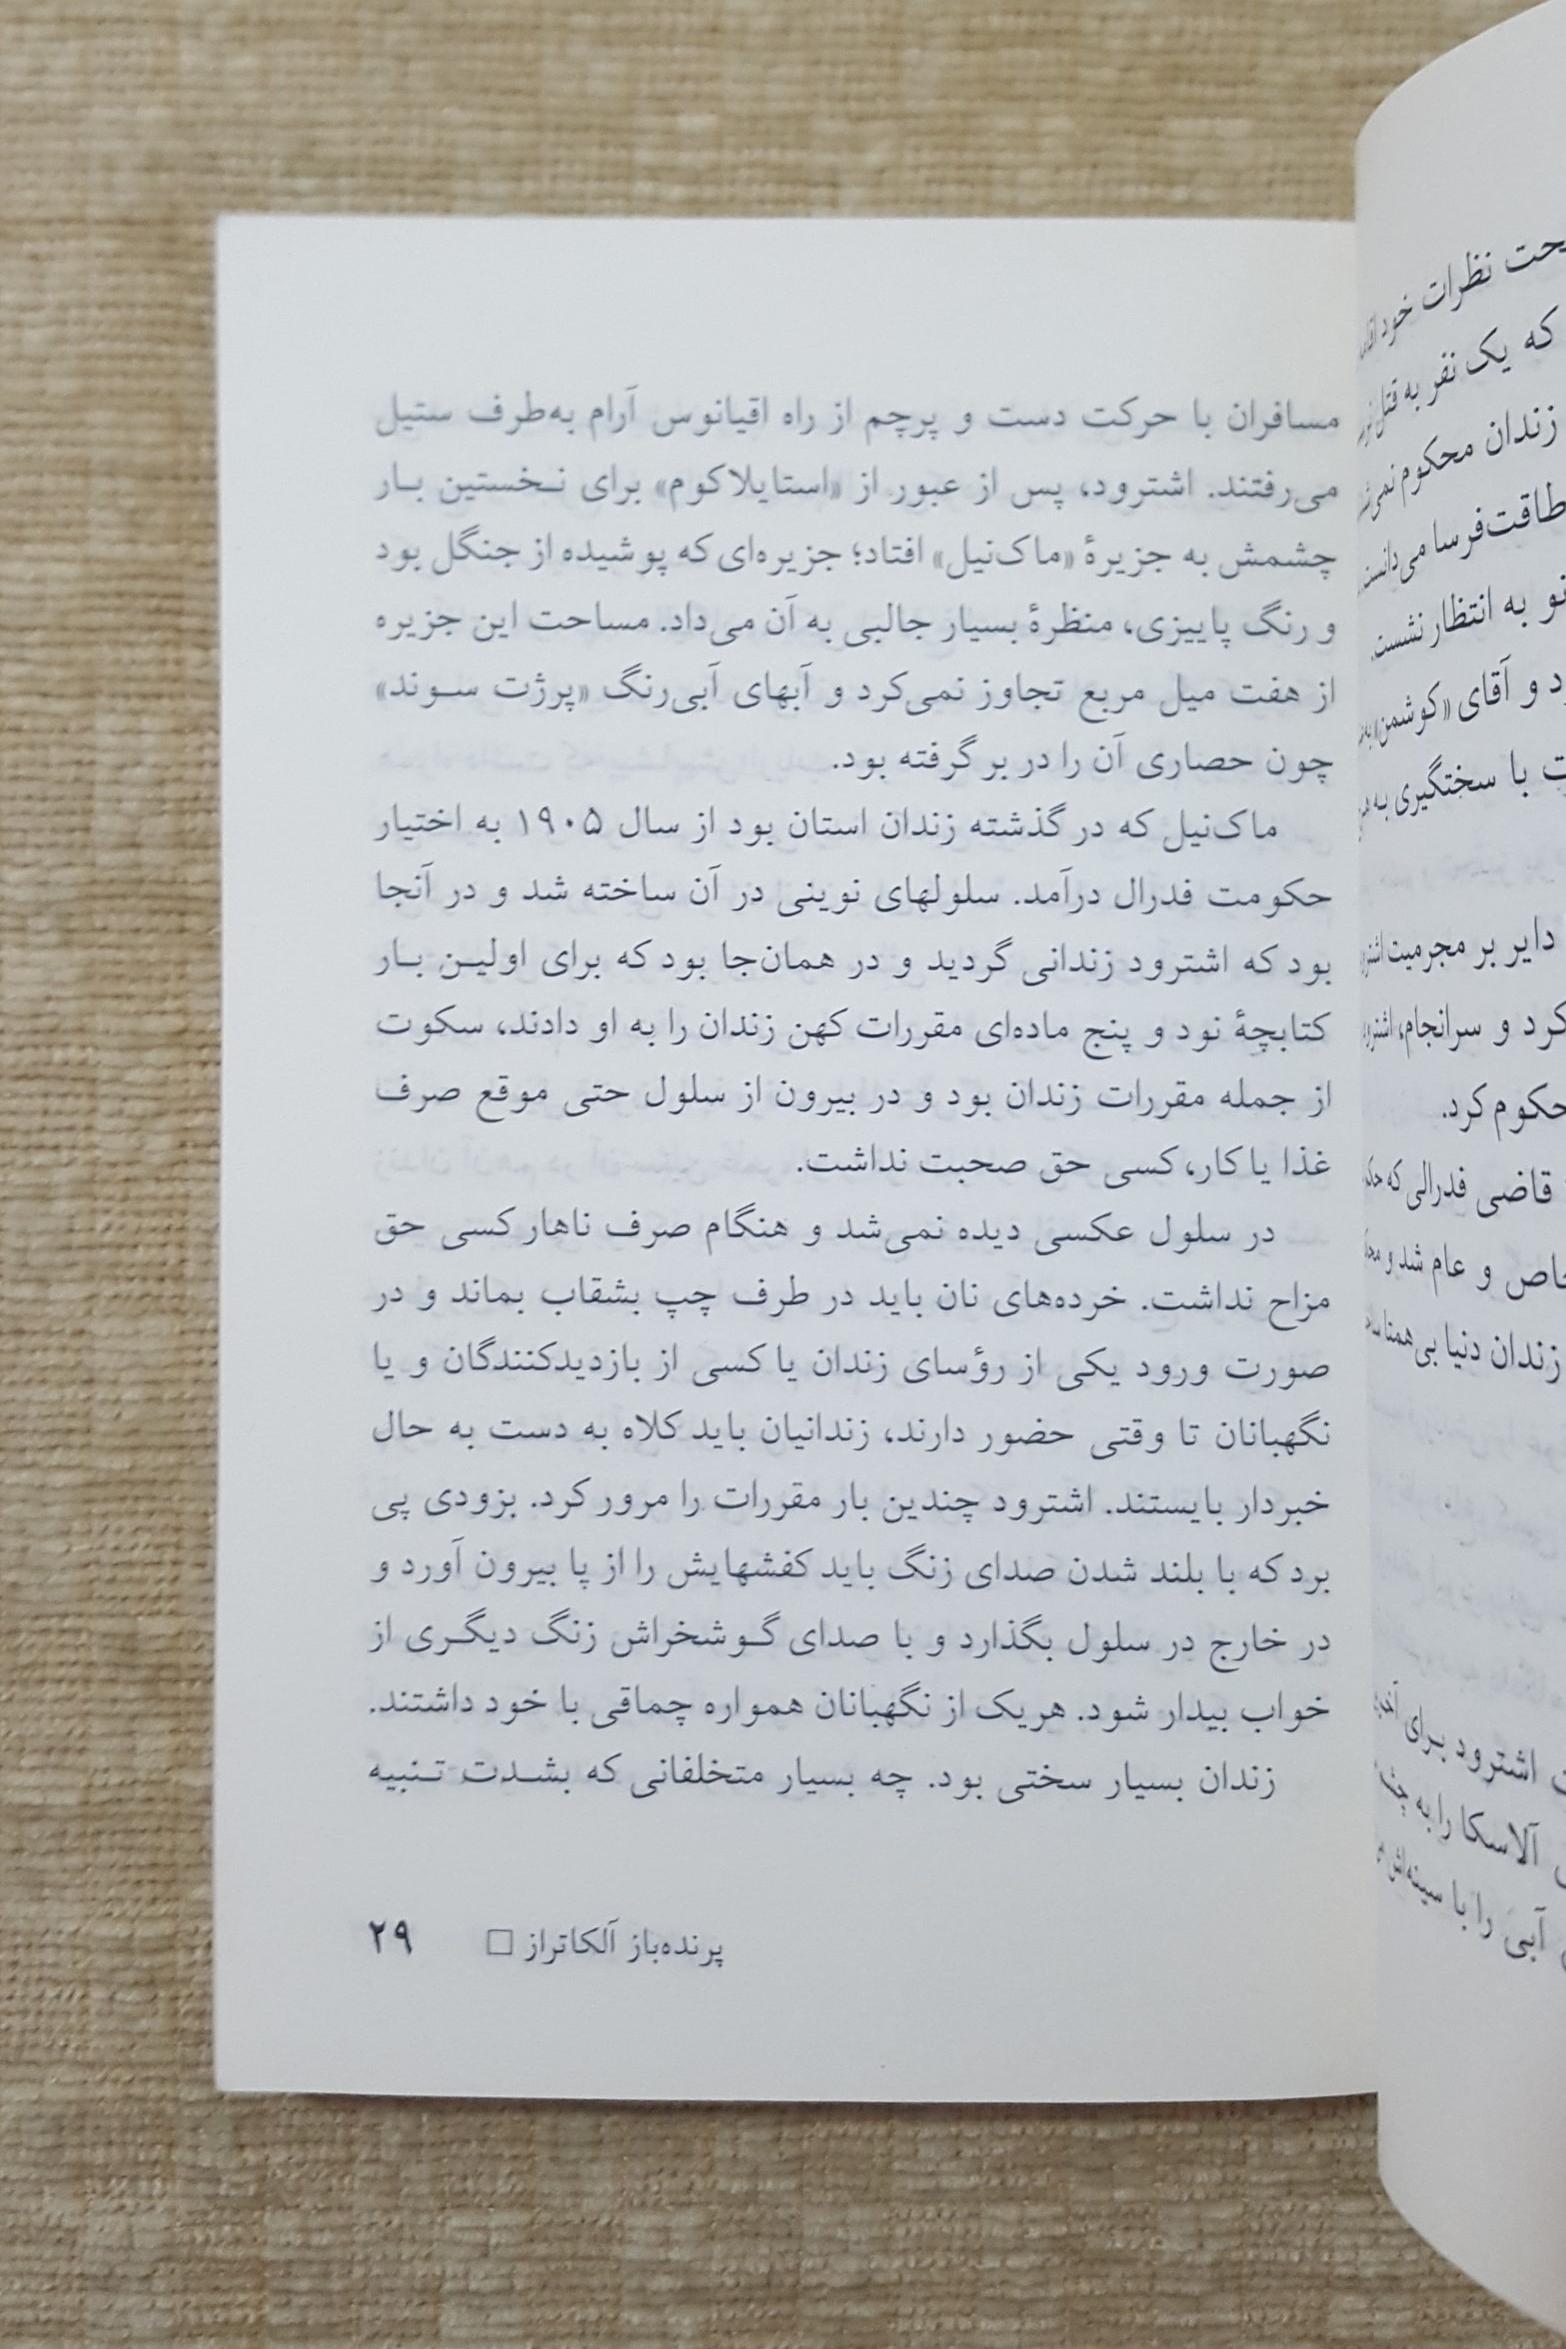 مسافران با حرکت دست و پرچم از راه اقیانوس آرام به‌طرف ستیل
می‌رفتند. اشترود، پس از عبور از «استایلاکوم» برای نخستین بار
چشمش به جزیرهٔ «ماک‌نیل» افتاد؛ جزیره‌ای که پوشیده از جنگل بود
و رنگ پاییزی، منظرهٔ بسیار جالبی به آن می‌داد. مساحت این جزیره
از هفت میل مربع تجاوز نمی‌کرد و آبهای آبی‌رنگ «پرژت سوند»
چون حصاری آن را در بر گرفته بود.
ماک‌نیل که در گذشته زندان استان بود از سال ۱۹۰۵ به اختیار
حکومت فدرال درآمد. سلولهای نوینی در آن ساخته شد و در آنجا
بود که اشترود زندانی گردید و در همان‌جا بود که برای اولین بار
کتابچهٔ نود و پنج ماده‌ای مقررات کهن زندان را به او دادند، سکوت
از جمله مقررات زندان بود و در بیرون از سلول حتی موقع صرف
غذا یا کار، کسی حق صحبت نداشت.
در سلول عکسی دیده نمی‌شد و هنگام صرف ناهار کسی حق
مزاح نداشت. خرده‌های نان باید در طرف چپ بشقاب بماند و در
صورت ورود یکی از رؤسای زندان یا کسی از بازدیدکنندگان و یا
نگهبانان تا وقتی حضور دارند، زندانیان باید کلاه به دست به حال
خبردار بایستند. اشترود چندین بار مقررات را مرور کرد. بزودی پی
برد که با بلند شدن صدای زنگ باید کفشهایش را از پا بیرون آورد و
در خارج در سلول بگذارد و با صدای گوشخراش زنگ دیگری از
خواب بیدار شود. هریک از نگهبانان همواره چماقی با خود داشتند.
زندان بسیار سختی بود. چه بسیار متخلفانی که بشدت تنبیه
پرنده‌باز آلکاتراز □ ۲۹
نظرات خود
که یک نفر به قتل
زندان محکوم
طاقت‌فرسا می‌دانست
به انتظار نشست.
و آقای «کوشمن»
با سختگیری به
دایر بر مجرمیت
کرد و سرانجام، اشترود
کرد.
قاضی فدرالی که
و عام شد و
زندان دنیا بی‌همتا
اشترود برای
آلاسکا را به
آبی را با سینه‌اش